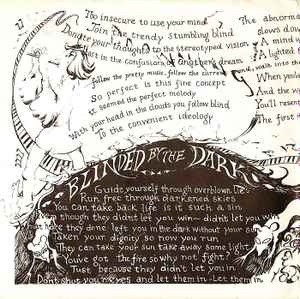 Too insecure to use your mind
Join the trendy stumbling blind
Donate your thoughts to the stereotyped vision
in the confusions of another's dream
follow the pretty music, follow the current
So perfect is this fine concept
it seemed the perfect melody
With your head in the clouds you follow blind
To the convenient ideology
The abnorma
slows down
A mind w
A light
and, walk into the
When you
And the
You'll resent
The first
BLINDED BY THE DARK
Guide yourself through overblown lies
Run free through darkened skies
You can take back life is it such a sin
though they didn't let you win - didn't let you win
they done left you in the dark without your sun
Taken your dignity so now you run
They can take your sun take away some light
You've got the fire so why not fight?
Just because they didn't let you in
Don't shut your eyes and let them in - Let them in